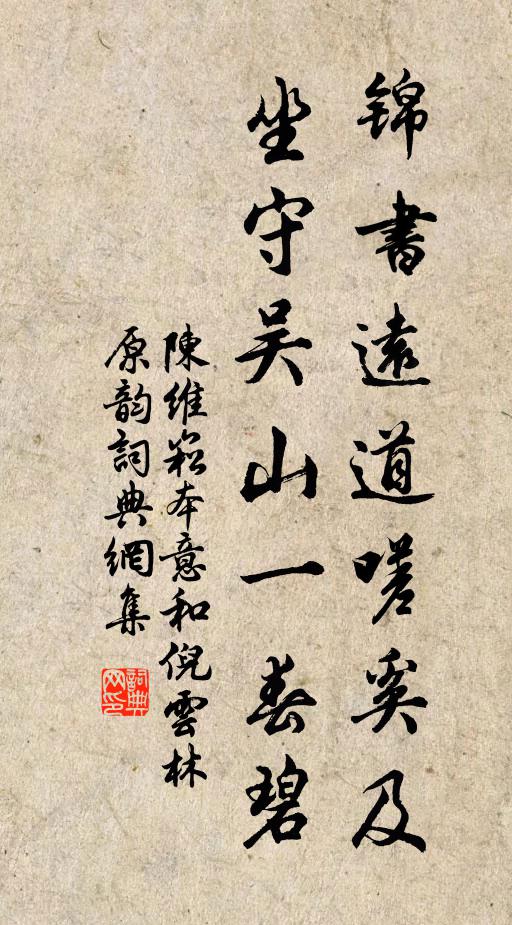 锦書遠道嗟奚及
坐守吴山一春碧
陳維崧本意和倪雲林
原韵詞典網集
詞典网印